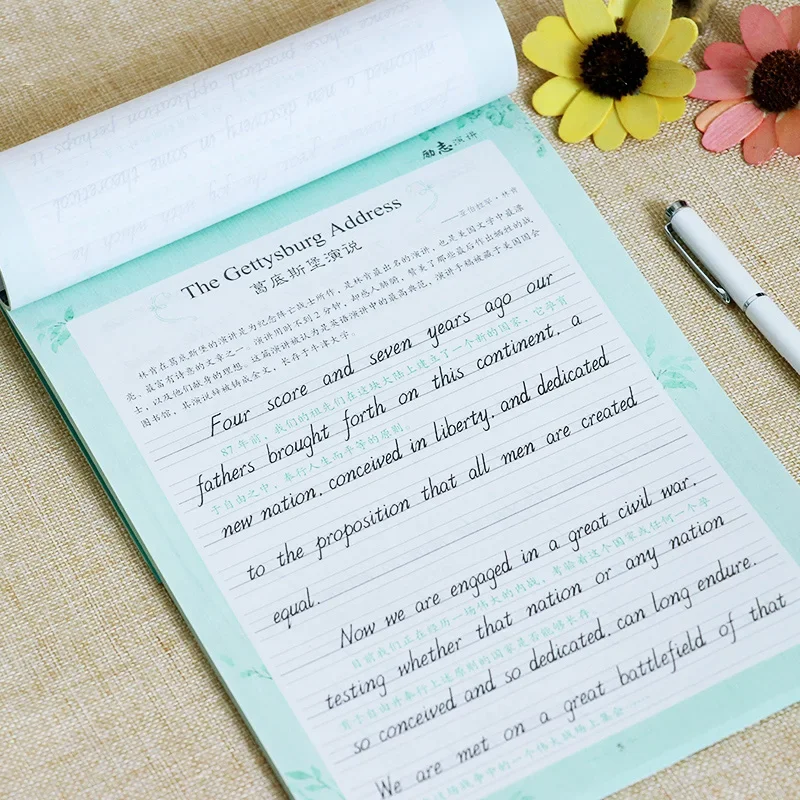 励志演讲
The Gettysburg Address
葛底斯堡演说
——亚伯拉罕·林肯
林肯在葛底斯堡的演讲是为纪念阵亡战士所作，是林肯最出名的演讲，也是美国文学中最漂
亮、最富有诗意的文章之一。演讲用时不到2分钟，却感人肺腑，赞美了那些最后作出牺牲的战
士，以及他们献身的理想。这篇演讲被认为是英语演讲中的最高典范，演讲手稿被藏于美国国会
图书馆，其演说辞被铸成金文，长存于牛津大学。
Four score and seven years ago our
87年前，我们的祖先们在这块大陆上建立了一个新的国家，它孕育
fathers brought forth on this continent, a
于自由之中，奉行人生而平等的原则。
new nation, conceived in liberty, and dedicated
to the proposition that all men are created
equal.
Now we are engaged in a great civil war,
目前我们正在经历一场伟大的内战，考验着这个国家或任何一个孕
testing whether that nation or any nation
育于自由并奉行上述原则的国家是否能够长存。
so conceived and so dedicated, can long endure.
We are met on a great battlefield of that
这场战争中的一个伟大战场上集会